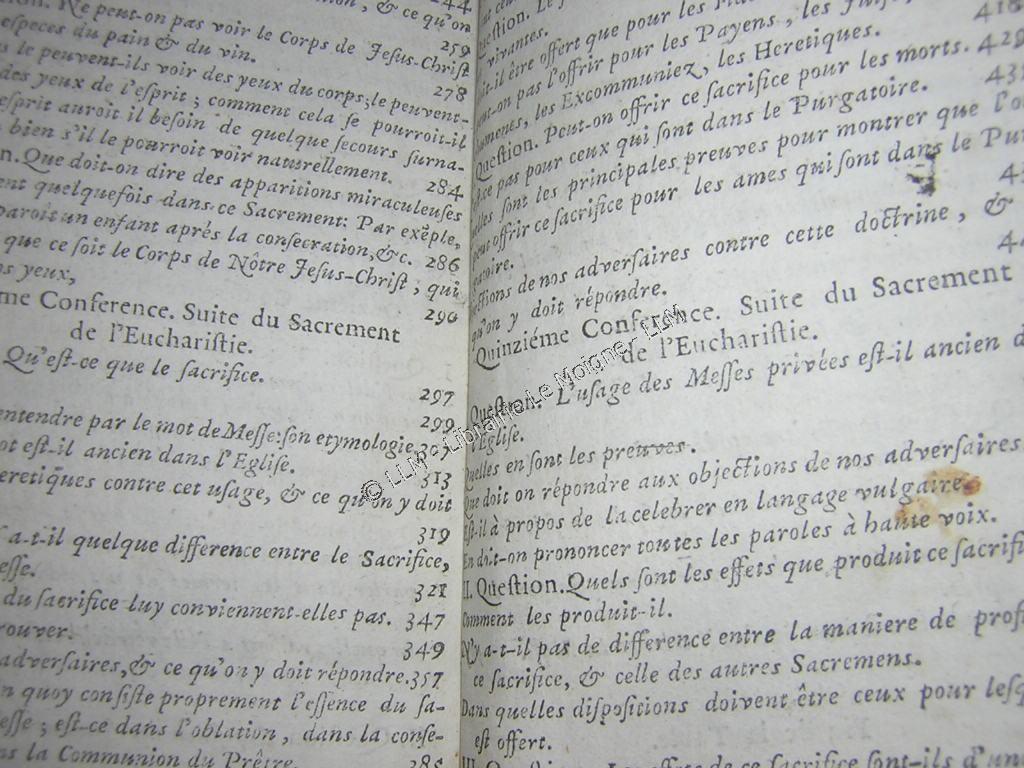 244
, & ce qu'on
Ne peut-on pas voir le Corps de Jesus-Christ
259
especes du pain & du vin.
le peuvent-ils voir des yeux du corps; le peuvent-
278
des yeux de l'esprit; comment cela se pourroit-il
esprit auroit il besoin de quelque secours surna-
bien s'il le pourroit voir naturellement.
284
Que doit-on dire des apparitions miraculeuses
quelquefois dans ce Sacrement: Par exẽple,
paroit un enfant aprés la consecration, &c. 286
que ce soit le Corps de Nôtre Jesus-Christ; qui
yeux,
290
me Conference. Suite du Sacrement
de l'Eucharistie.
Qu'est-ce que le sacrifice.
297
299
entendre par le mot de Messe: son etymologie 307
est-il ancien dans l'Eglise.
313
heretiques contre cet usage, & ce qu'on y doit
319
a-t-il quelque difference entre le Sacrifice,
esse.
321
du sacrifice luy conviennent-elles pas. 347
rouver.
349
adversaires, & ce qu'on y doit répondre. 357
quoy consiste proprement l'essence du sa-
esse; est-ce dans l'oblation, dans la conse-
la Communion du Prêtre.
385
Question.
vivantes.
il être offert que pour les
418
peut-on pas l'offrir pour les Payens, les Juifs,
les Excommuniez, les Heretiques.
429
Question. Peut-on offrir ce sacrifice pour les morts.
pas pour ceux qui sont dans le Purgatoire.
43
sont les principales preuves pour montrer que l'on
peut offrir ce sacrifice pour les ames qui sont dans le Pur
gatoire.
43
ections de nos adversaires contre cette doctrine, &
qu'on y doit répondre.
44
Quinziéme Conference. Suite du Sacrement
de l'Eucharistie.
Question. L'usage des Messes privées est-il ancien d
l'Eglise.
Quelles en sont les preuves.
Que doit on répondre aux objections de nos adversaires.
Est-il à propos de la celebrer en langage vulgaire.
En doit-on prononcer toutes les paroles à haute voix.
II. Question. Quels sont les effets que produit ce sacrifi
Comment les produit-il.
N'y a-t-il pas de difference entre la maniere de prof
ce sacrifice, & celle des autres Sacremens.
Dans quelles dispositions doivent être ceux pour lesq
est offert.
III. effets de ce sacrifice sont-ils d'un
© LLM - Librairie Le Moigner LLM